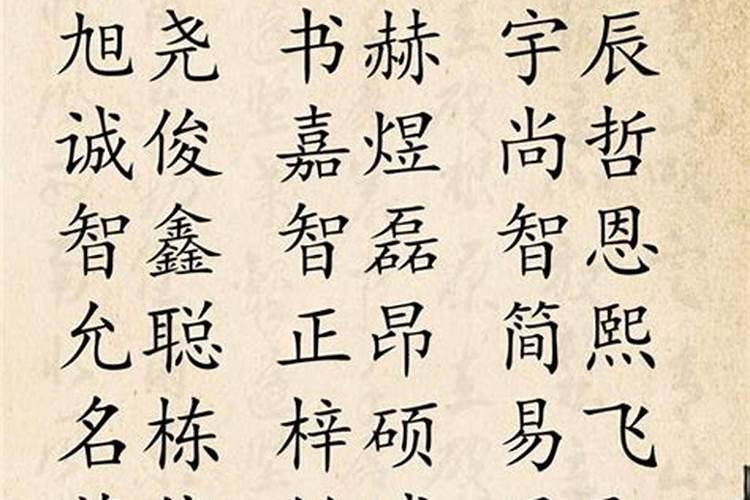 旭尧 书赫 宇辰
诚俊 嘉煜 尚哲
智鑫 智磊 智恩
允聪 正昂 简熙
名栋 梓硕 易飞